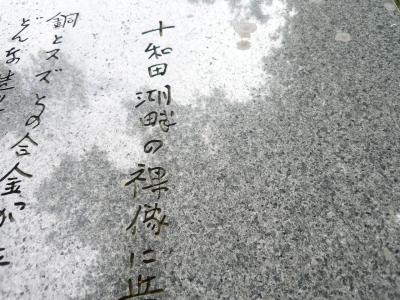 十和田湖畔の裸像に
銅とスズとの合金が立
どんな造